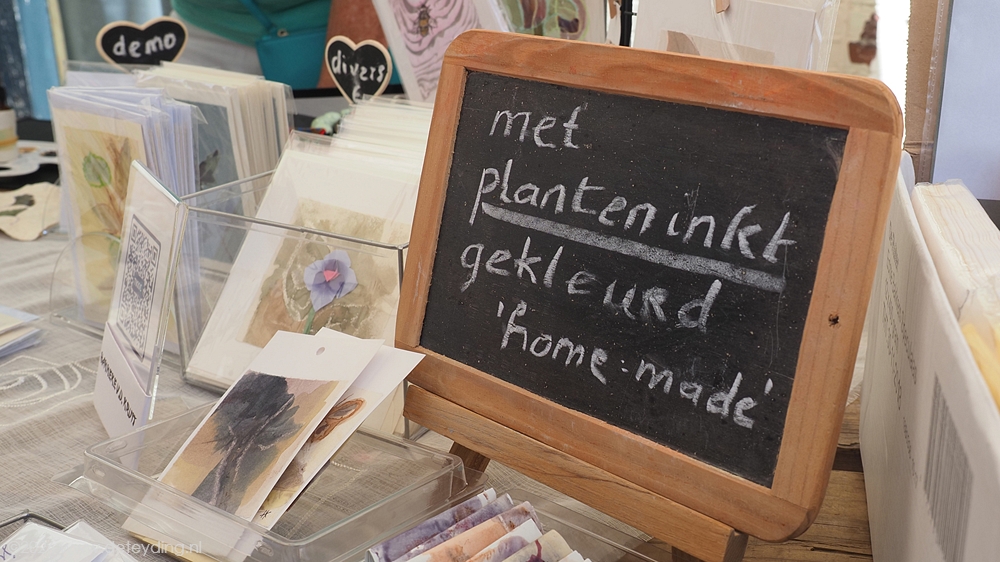 demo
divers
met
planteninkt
gekleurd
'home-made'